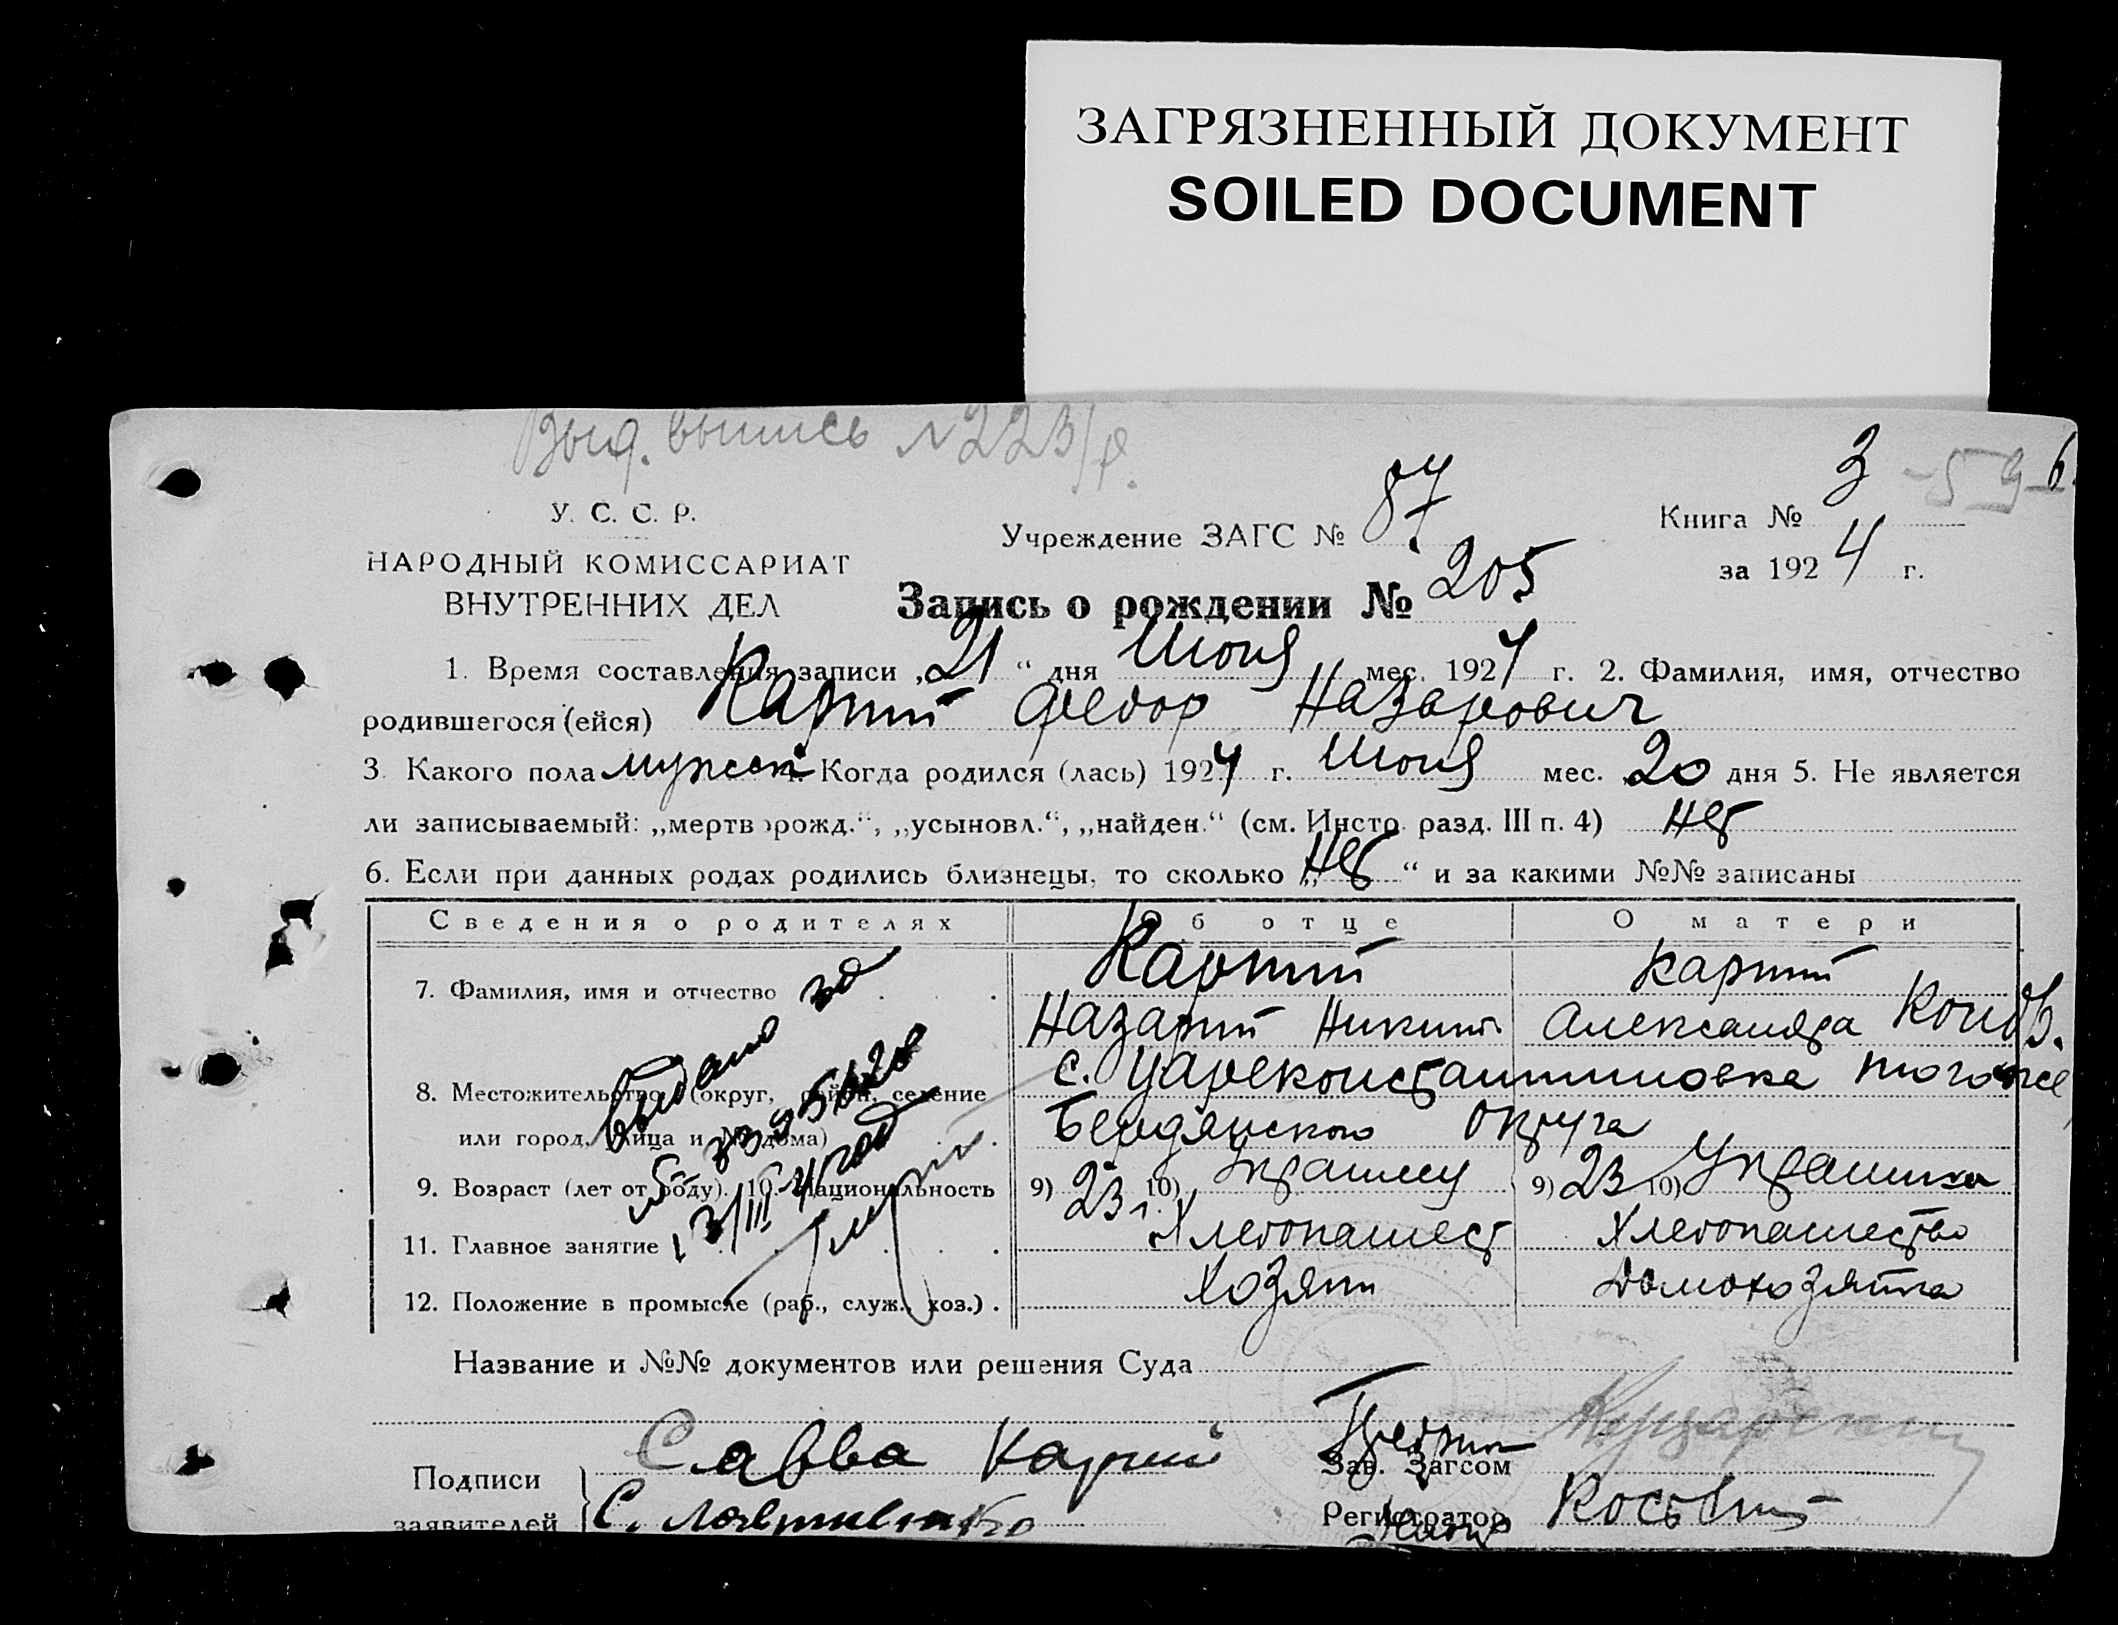 ЗАГРЯЗНЕННЫЙ ДОКУМЕНТ
SOILED DOCUMENT
Выд. выпись №223/р.
3 -59- 6.
У. С. С. Р.
НАРОДНЫЙ КОМИССАРИАТ
ВНУТРЕННИХ ДЕЛ
Учреждение ЗАГС № 87
Книга №
за 1924 г.
Запись о рождении № 205
1. Время составления записи „21“ дня Июня мес. 1924 г. 2. Фамилия, имя, отчество
родившегося (ейся) Карпий Федор Назарович
3. Какого пола мужск 4. Когда родился (лась) 1924 г. Июня мес. 20 дня 5. Не является
ли записываемый: „мертворожд.“, „усыновл.“, „найден.“ (см. Инстр. разд. III п. 4) Нет
6. Если при данных родах родились близнецы, то сколько „Нет“ и за какими №№ записаны
Сведения о родителях Об отце О матери
7. Фамилия, имя и отчество Карпий Карпий
Назарий Никит. Александра Конд.
8. Местожительство (округ, район, селение с. Цареконстантиновка того же
или город, улица и № дома) Бердянского округа
9. Возраст (лет от роду). 10. Национальность 9) 23 г. 10) Украинец 9) 23 10) Украинка
11. Главное занятие Хлебопашест Хлебопашество
12. Положение в промысле (раб., служ., хоз.) . Хозяин Домохозяйка
выдано
Название и №№ документов или решения Суда
Подписи
заявителей
Савва Карпий
Зав. Загсом
Регистратор